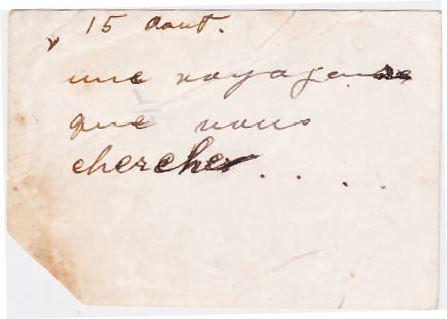 15 Aout.
une voyageuse
que vous
cherchez....